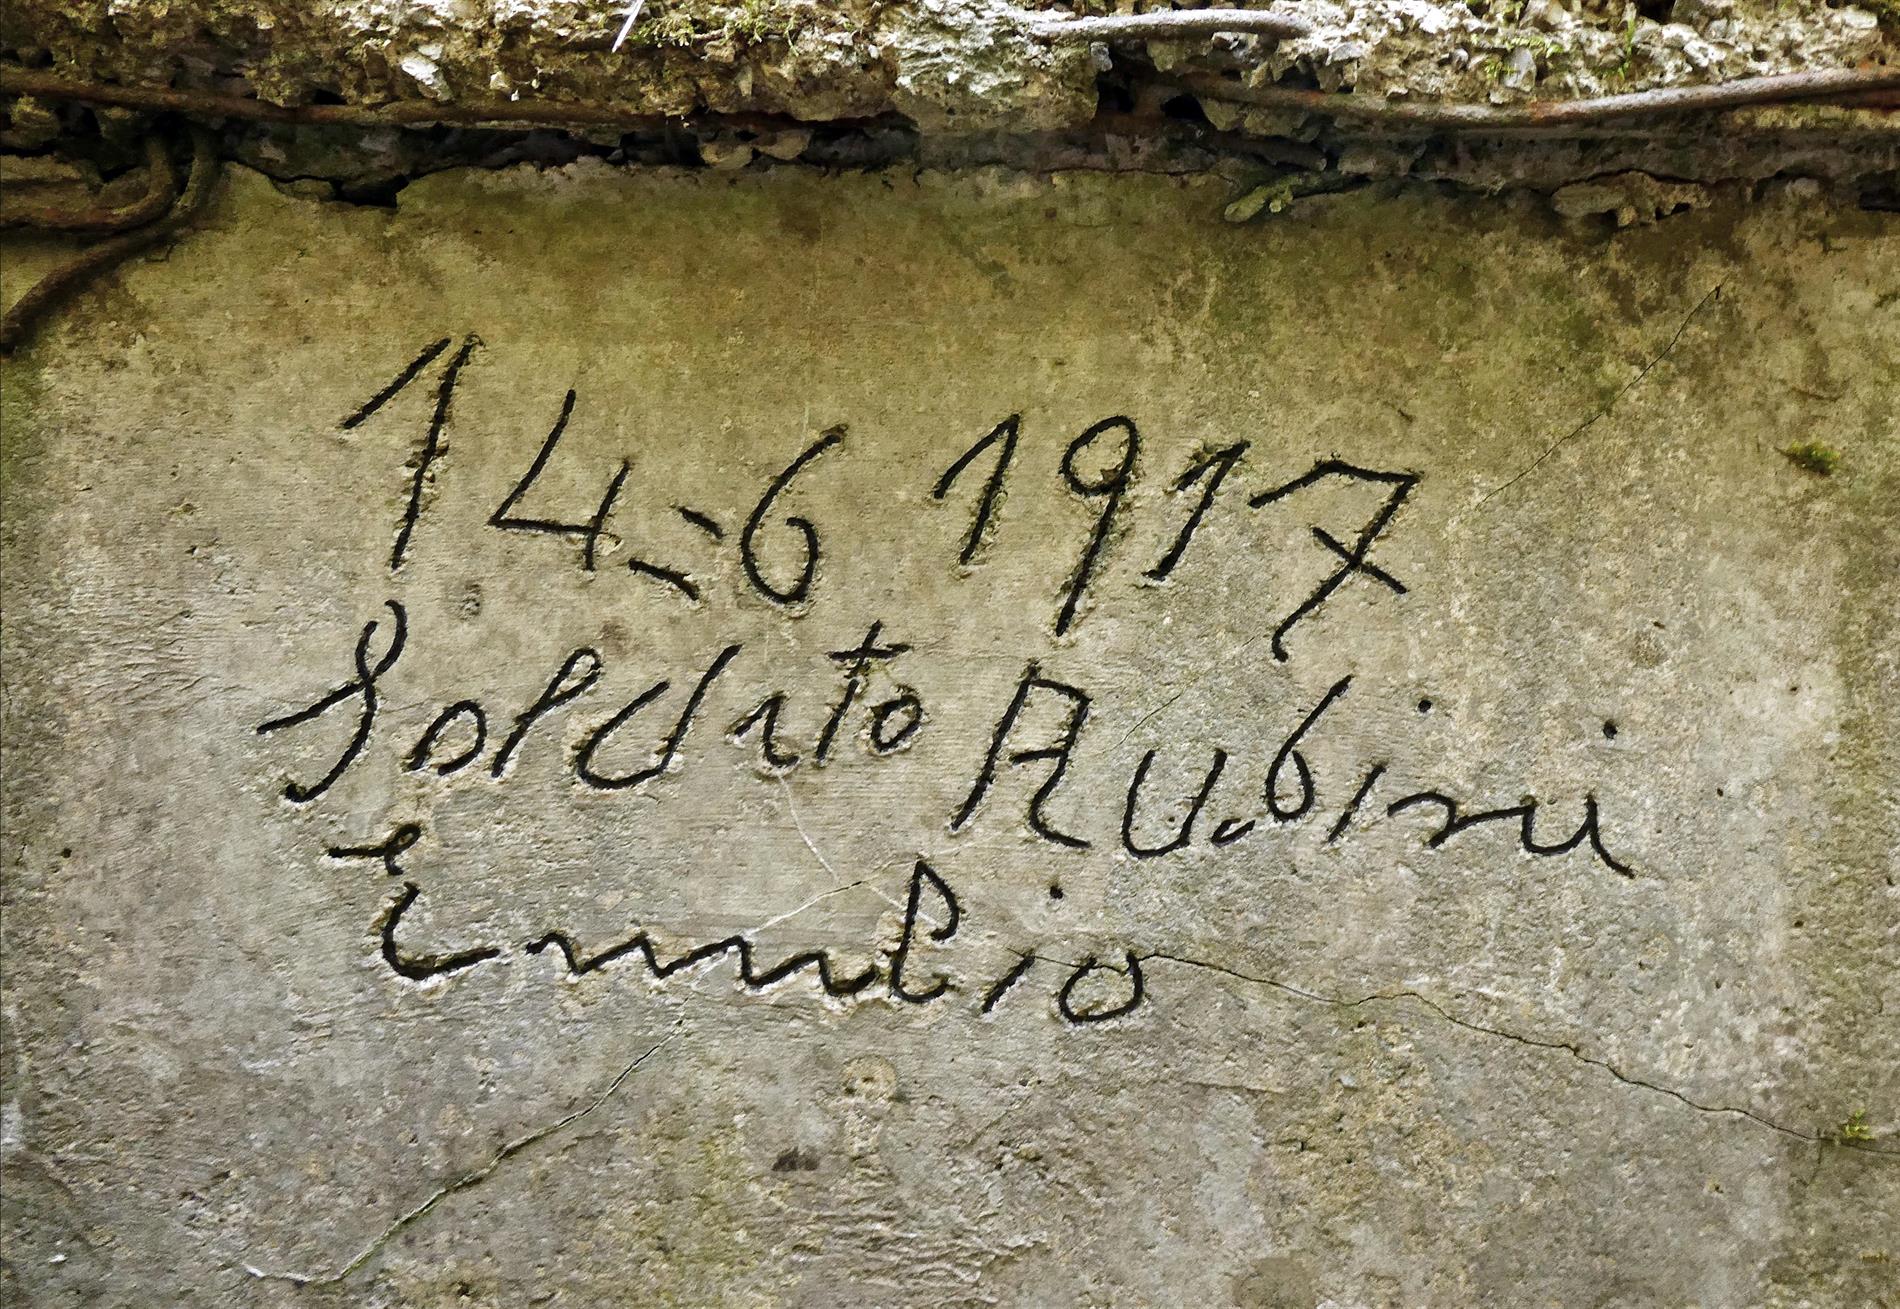 14=6 1917
Soldato Rubini
Emilio